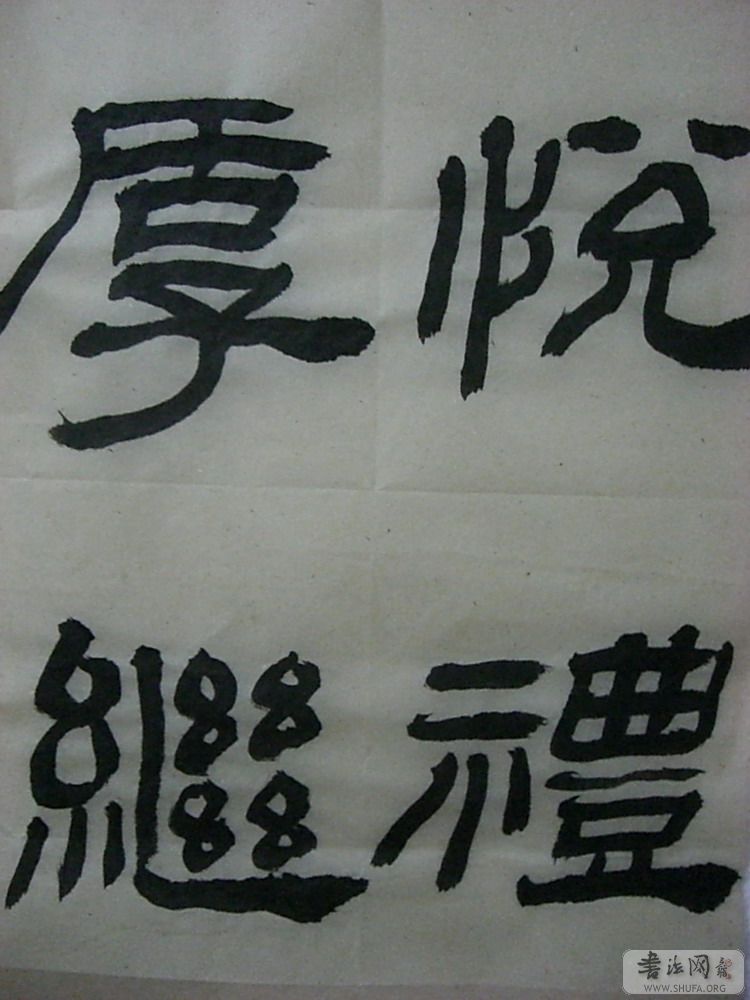 悦禮
厚繼
書法网
WWW.SHUFA.ORG